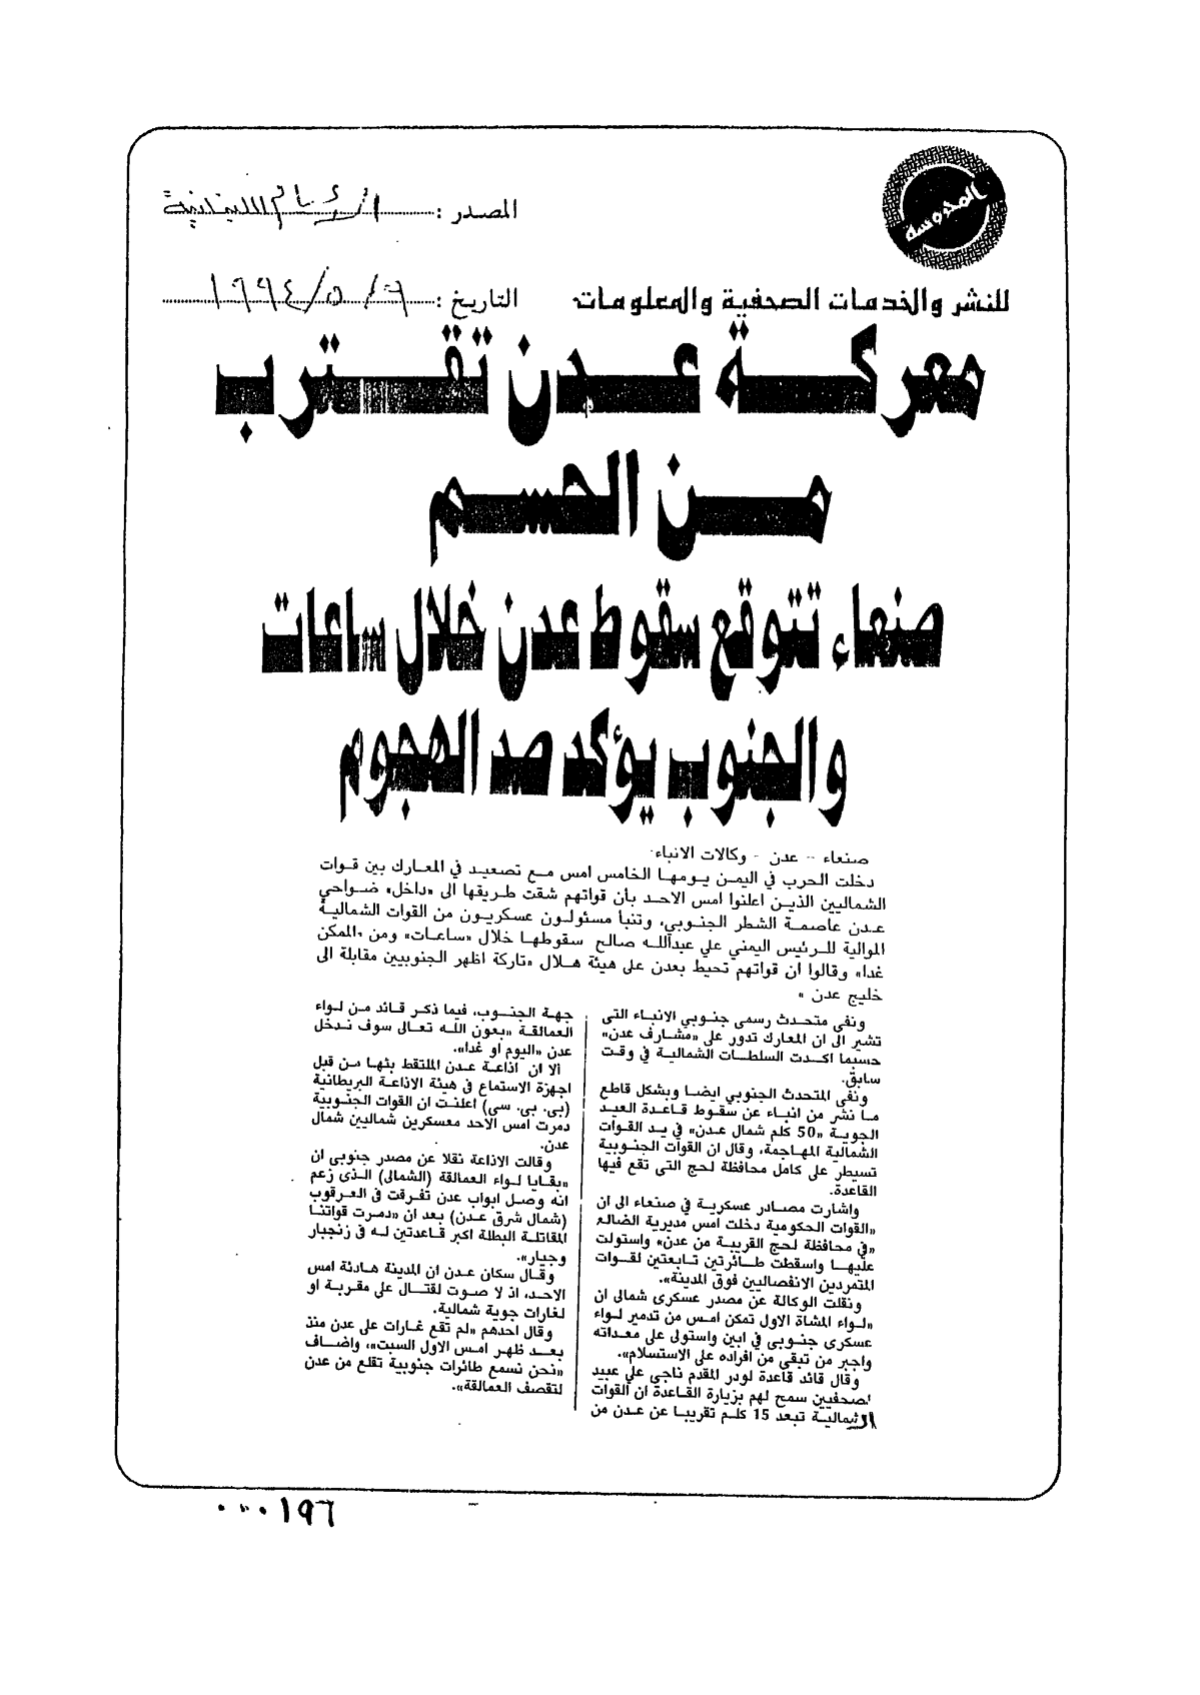 المحروسة
المصدر :
الأيام اللبنانية
للنشر والخدمات الصحفية والمعلومات
التاريخ : ٩ / ٥ / ١٩٩٤
معركة عدن تقترب
من الحسم
صنعاء تتوقع سقوط عدن خلال ساعات
والجنوب يؤكد صد الهجوم
صنعاء - عدن - وكالات الانباء
دخلت الحرب في اليمن يومها الخامس امس مع تصعيد في المعارك بين قوات
الشماليين الذين اعلنوا امس الاحد بأن قواتهم شقت طريقها الى «داخل» ضواحي
عدن عاصمة الشطر الجنوبي، وتنبأ مسئولون عسكريون من القوات الشمالية
الموالية للرئيس اليمني علي عبدالله صالح سقوطها خلال «ساعات» ومن «الممكن
غدا» وقالوا ان قواتهم تحيط بعدن على هيئة هلال «تاركة اظهر الجنوبيين مقابلة الى
خليج عدن »
ونفى متحدث رسمى جنوبي الانباء التى
تشير الى ان المعارك تدور على «مشارف عدن»
حسبما اكدت السلطات الشمالية في وقت
سابق.
ونفى المتحدث الجنوبي ايضا وبشكل قاطع
ما نشر من انباء عن سقوط قاعدة العيد
الجوية «50 كلم شمال عدن» في يد القوات
الشمالية المهاجمة، وقال ان القوات الجنوبية
تسيطر على كامل محافظة لحج التى تقع فيها
القاعدة.
واشارت مصادر عسكرية في صنعاء الى ان
«القوات الحكومية دخلت امس مديرية الضالع
«في محافظة لحج القريبة من عدن» واستولت
عليها واسقطت طائرتين تابعتين لقوات
المتمردين الانفصاليين فوق المدينة».
ونقلت الوكالة عن مصدر عسكرى شمالى ان
«لواء المشاة الاول تمكن امس من تدمير لواء
عسكرى جنوبى في ابين واستولى على معداته
واجبر من تبقى من افراده على الاستسلام».
وقال قائد قاعدة لودر المقدم ناجى علي عبيد
لصحفيين سمح لهم بزيارة القاعدة ان القوات
الشمالية تبعد 15 كلم تقريبا عن عدن من
جهة الجنوب، فيما ذكر قائد من لواء
العمالقة «بعون الله تعالى سوف ندخل
عدن «اليوم او غدا».
الا ان اذاعة عدن الملتقط بثها من قبل
اجهزة الاستماع في هيئة الاذاعة البريطانية
(بى. بى. سى) اعلنت ان القوات الجنوبية
دمرت امس الاحد معسكرين شماليين شمال
عدن.
وقالت الاذاعة نقلا عن مصدر جنوبى ان
«بقايا لواء العمالقة (الشمالى) الذى زعم
انه وصل ابواب عدن تفرقت فى العرقوب
(شمال شرق عدن) بعد ان «دمرت قواتنا
المقاتلة البطلة اكبر قاعدتين له فى زنجبار
وجبار».
وقال سكان عدن ان المدينة هادئة امس
الاحد، اذ لا صوت لقتال على مقربة او
لغارات جوية شمالية.
وقال احدهم «لم تقع غارات على عدن منذ
بعد ظهر امس الاول السبت»، واضاف
«نحن نسمع طائرات جنوبية تقلع من عدن
لتقصف العمالقة».
٠٠٠١٩٦